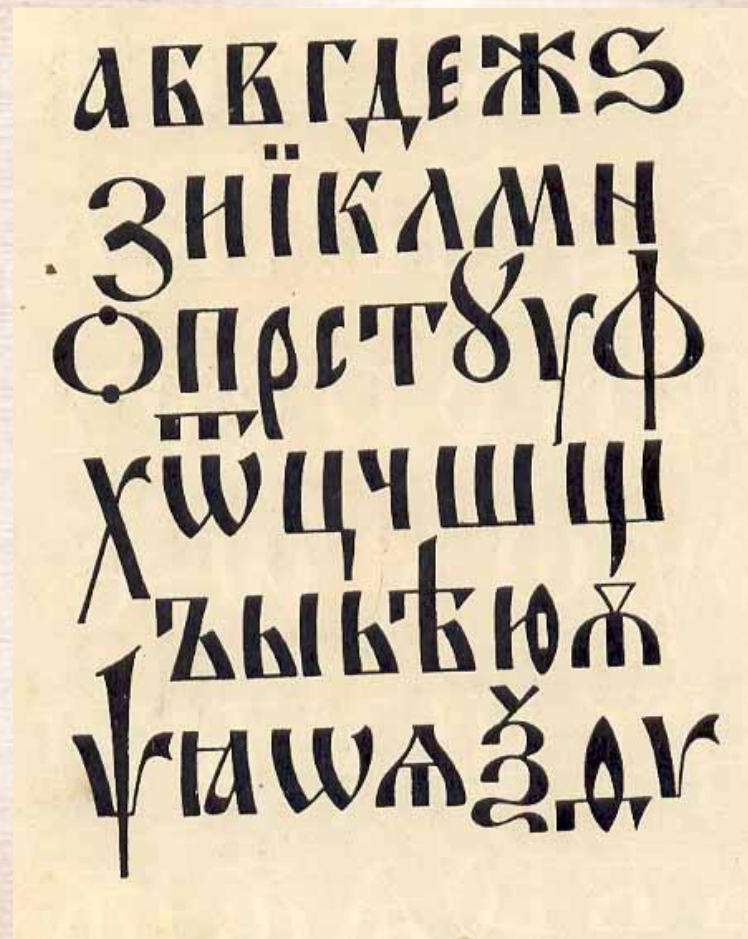 А Б В Г Д Е Ж Ѕ
З И Ї К Л М Н
О П Р С Т Ꙋ У Ф
Х Ѿ Ц Ч Ш Щ
Ъ Ы Ь Ѣ Ю Ѫ
Ѱ Ꙗ Ѡ Ѧ Ѯ Ѳ Ѵ